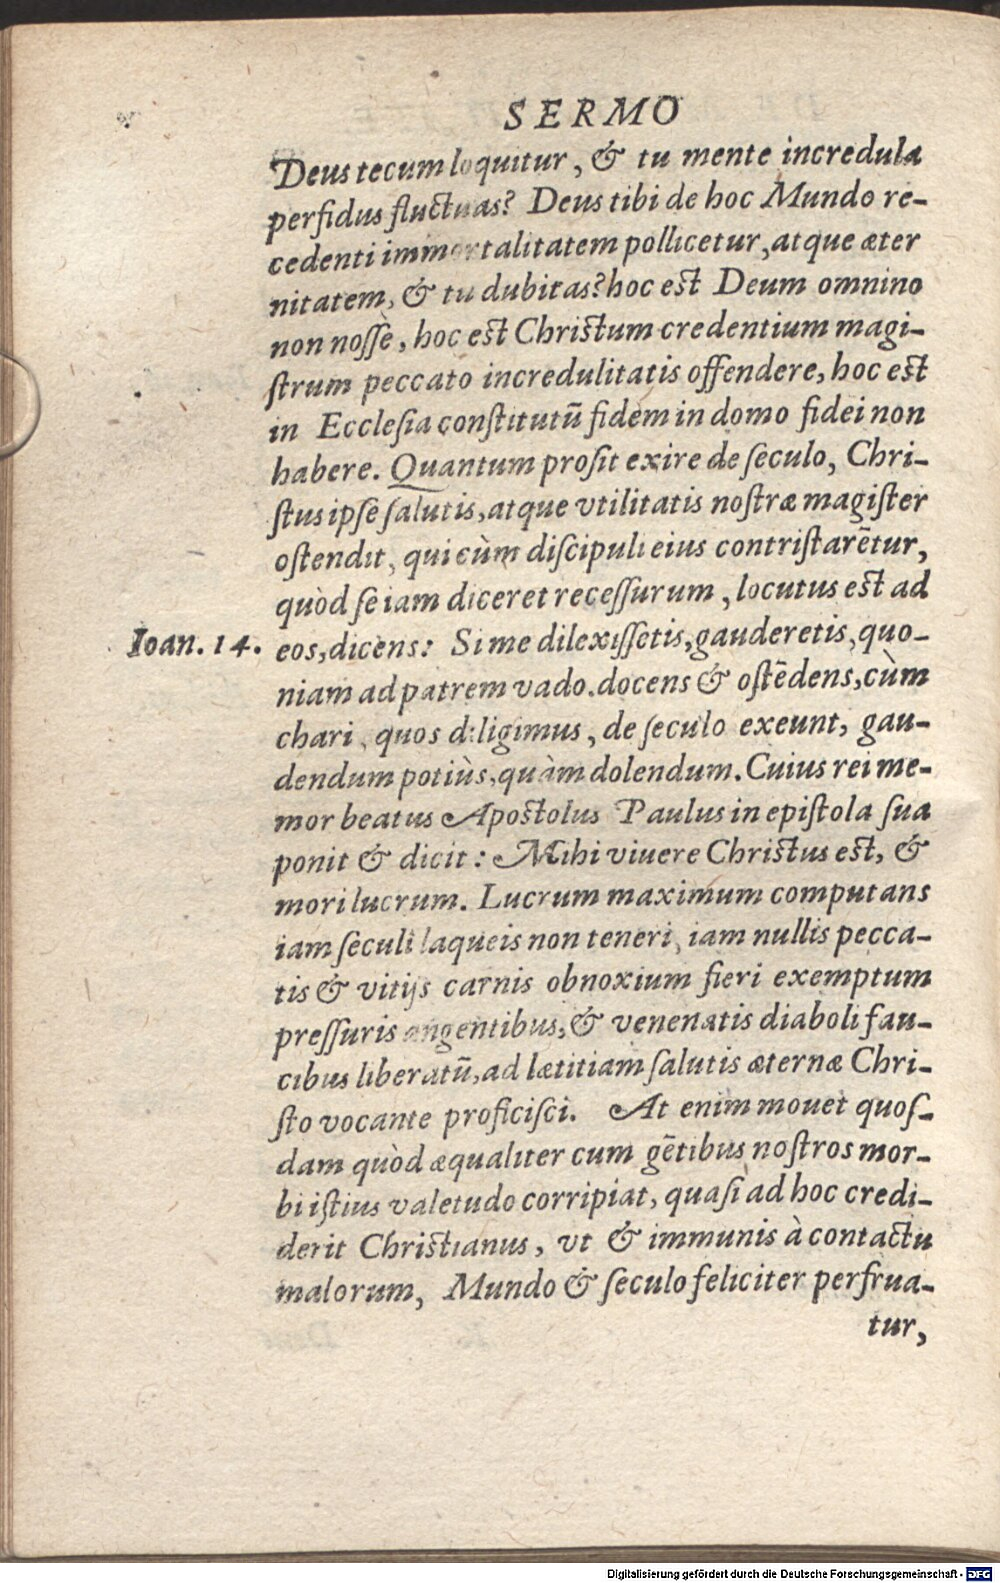 SERMO
Deus tecum loquitur, & tu mente incredula
perfidus fluctuas? Deus tibi de hoc Mundo re-
cedenti immortalitatem pollicetur, atque æter
nitatem, & tu dubitas? hoc est Deum omnino
non nosse, hoc est Christum credentium magi-
strum peccato incredulitatis offendere, hoc est
in Ecclesia constitutū fidem in domo fidei non
habere. Quantum prosit exire de seculo, Chri-
stus ipse salutis, atque vtilitatis nostræ magister
ostendit, qui cùm discipuli eius contristarētur,
quòd se iam diceret recessurum, locutus est ad
Ioan. 14. eos, dicens: Si me dilexissetis, gauderetis, quo-
niam ad patrem vado. docens & ostēdens, cùm
chari, quos diligimus, de seculo exeunt, gau-
dendum potiùs, quàm dolendum. Cuius rei me-
mor beatus Apostolus Paulus in epistola sua
ponit & dicit: Mihi viuere Christus est, &
mori lucrum. Lucrum maximum computans
iam seculi laqueis non teneri, iam nullis pecca-
tis & vitijs carnis obnoxium fieri exemptum
pressuris angentibus, & venenatis diaboli fau-
cibus liberatū, ad lætitiam salutis æternæ Chri-
sto vocante proficisci. At enim mouet quos-
dam quòd æqualiter cum gētibus nostros mor-
bi istius valetudo corripiat, quasi ad hoc credi-
derit Christianus, vt & immunis à contactu
malorum, Mundo & seculo feliciter perfrua-
tur,
Digitalisierung gefördert durch die Deutsche Forschungsgemeinschaft - DFG